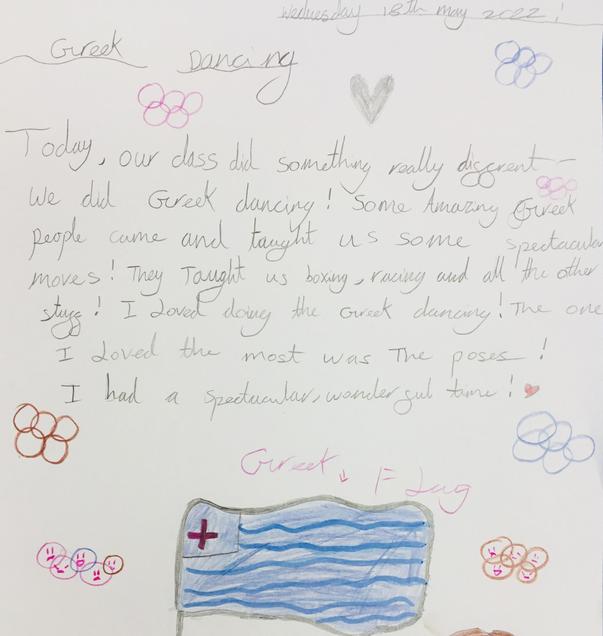 Wednesday 18th May 2022!
Greek Dancing
Today, our class did something really diggrent –
We did Greek dancing! Some Amazing Greek
people came and taught us some spectacular
moves! They Taught us boxing, racing and all the other
stugg! I Loved doing the Greek dancing! The one
I Loved the most was The poses!
I had a spectacular, wondergul time!
Greek Flag